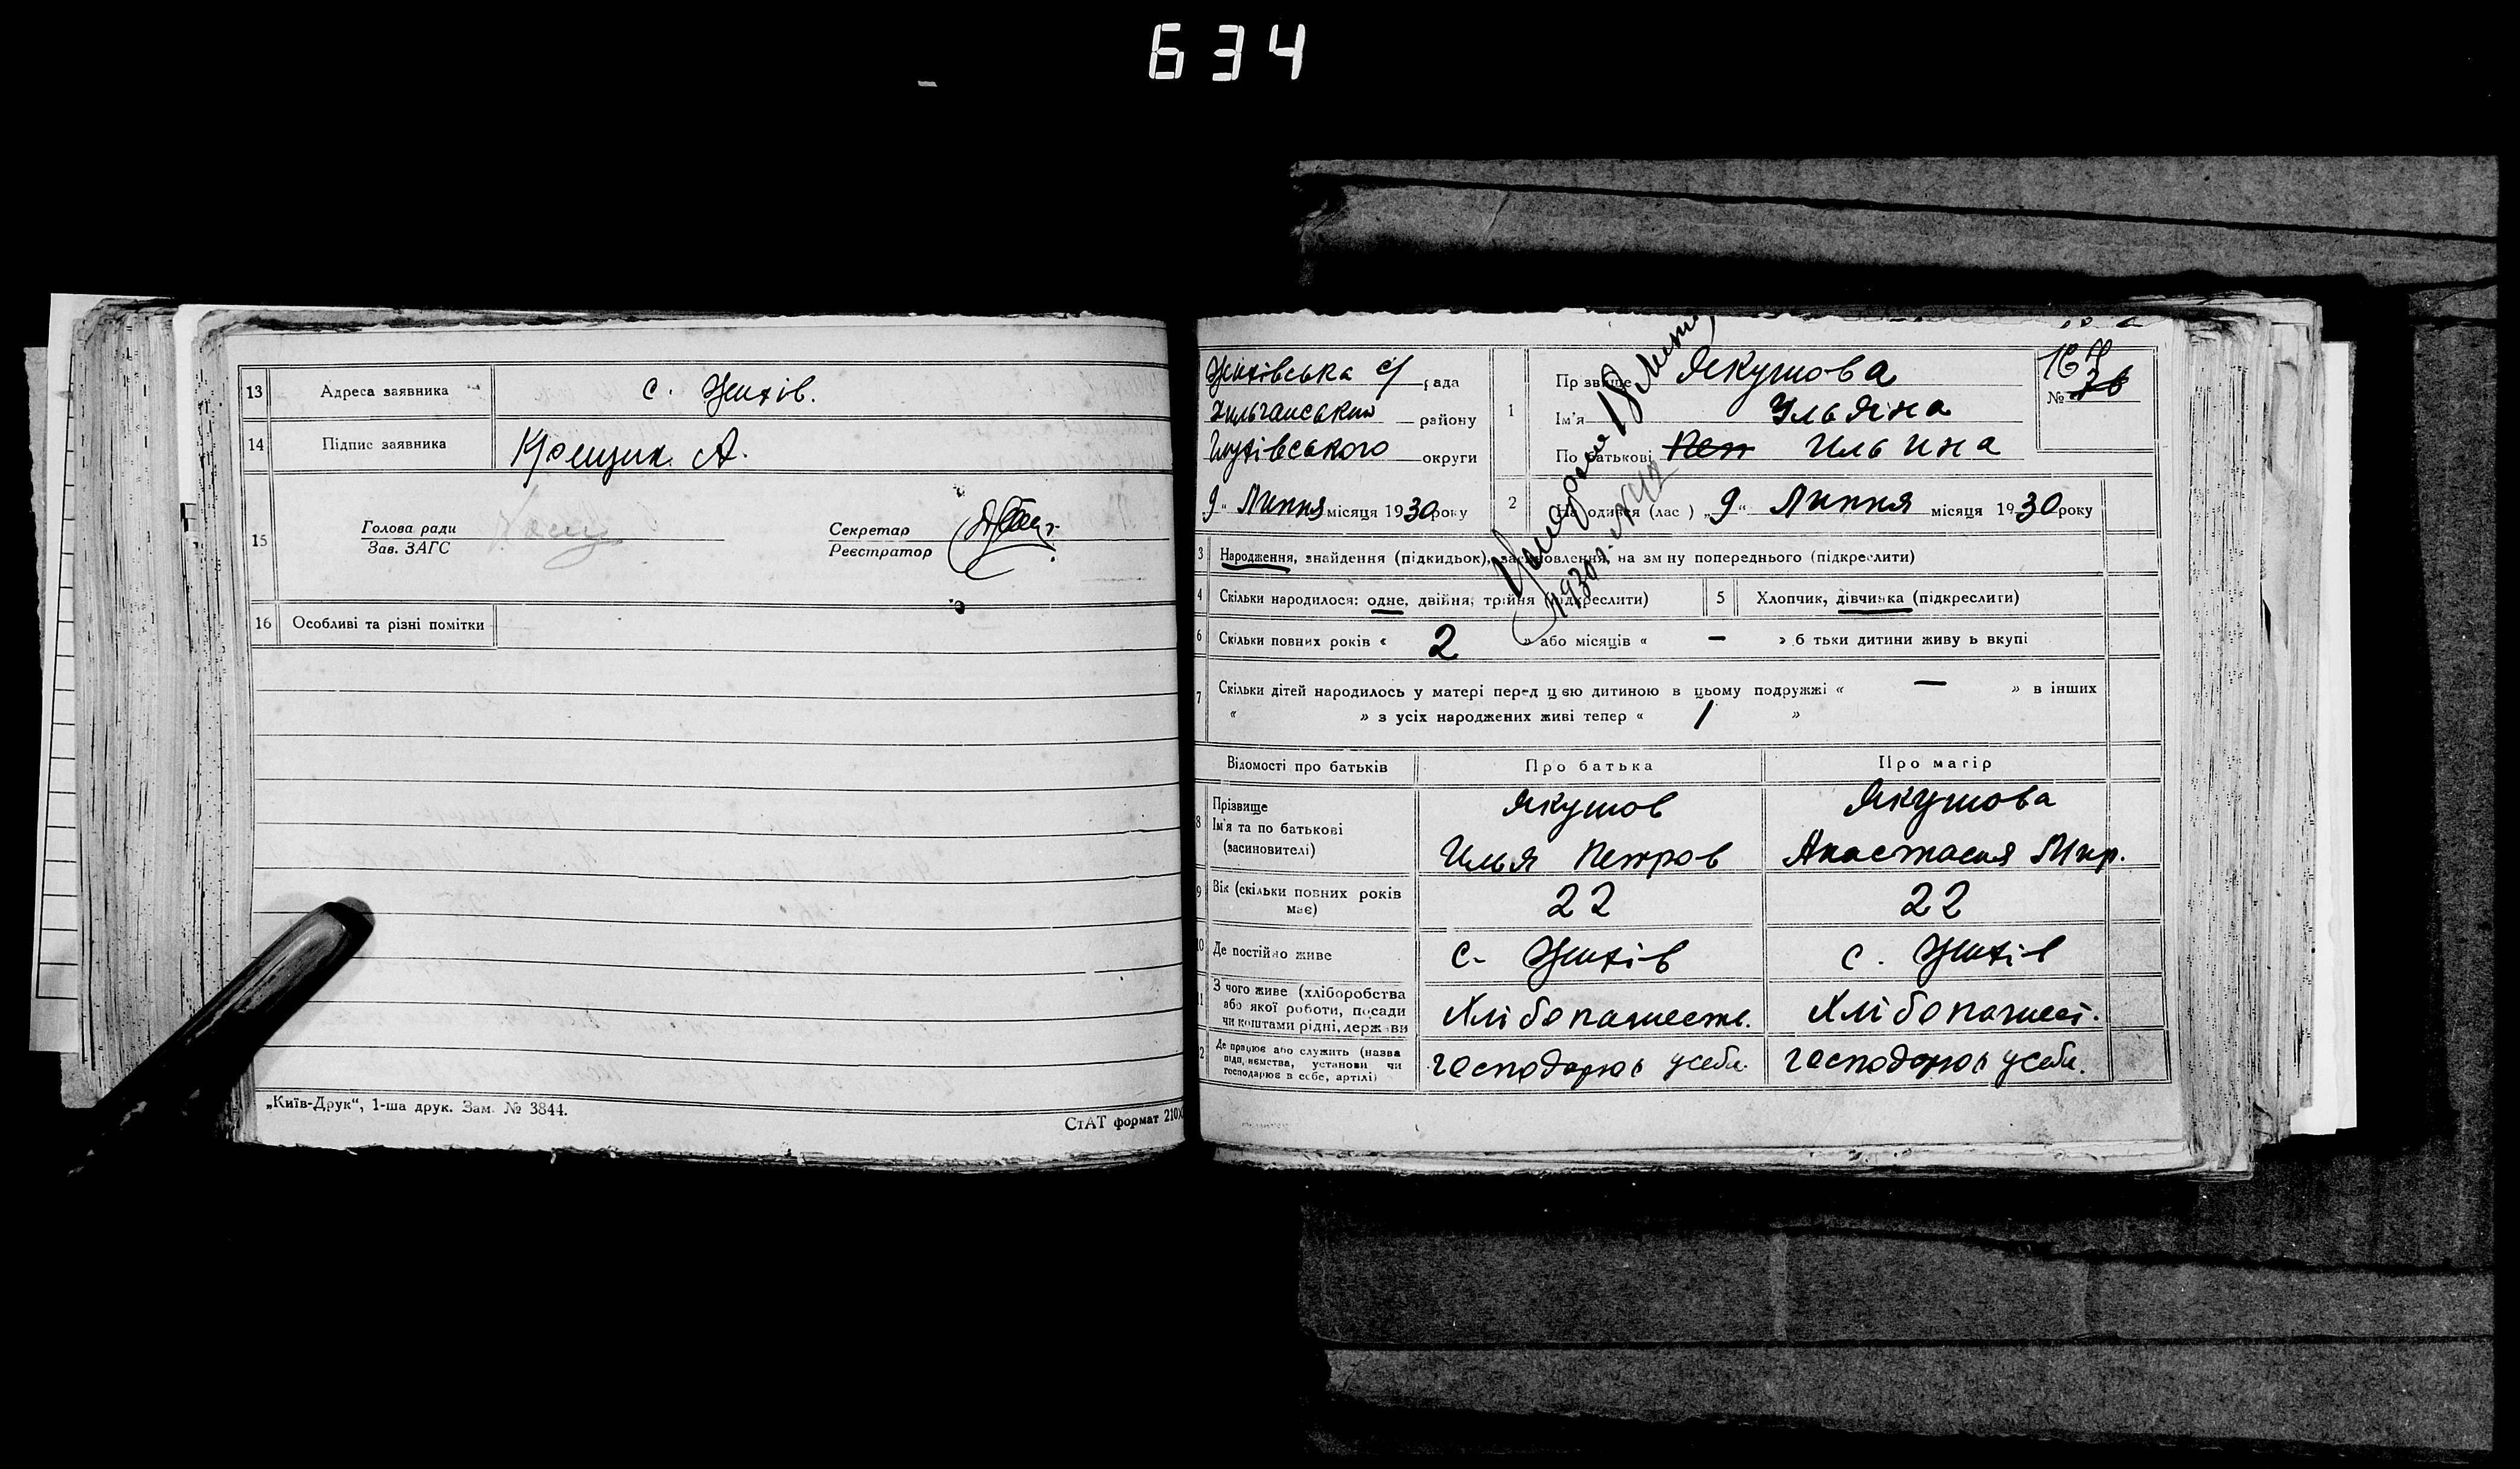 634
13 Адреса заявника с. Жихів.
14 Підпис заявника Крещик А.
15 Голова ради
Зав. ЗАГС
Секретар
Реєстратор
16 Особливі та різні помітки
„Київ-Друк“, 1-ша друк. Зам. № 3844.
СтАТ формат 210х
Жихівська с/ рада
район
округи
9 " Липня місяця 1930 року
1 Прізвище Якушова
Ім'я Ульяна
По батькові Ильина
167
№ 76
2 Народився (лась) „ 9 " Липня місяця 1930 року
18
1930 р. №
3 Народження, знайдення (підкидьок), засиновлення, на зміну попереднього (підкреслити)
4 Скільки народилося: одне, двійня, трійня (підкреслити)
5 Хлопчик, дівчинка (підкреслити)
6 Скільки повних років « 2 » або місяців « — » батьки дитини живуть вкупі
7 Скільки дітей народилось у матері перед цією дитиною в цьому подружжі « — » в інших
« » з усіх народжених живі тепер « 1 »
Відомості про батьків Про батька Про матір
8 Прізвище Якушов Якушова
Ім'я та по батькові
(засиновителі) Илья Петров Анастасия Мир.
9 Вік (скільки повних років має) 22 22
10 Де постійно живе с. Жихів с. Жихів
11 З чого живе (хліборобства
або якої роботи, посади
чи коштами рідні, держави Хлібопашест. Хлібопашест.
12 Де працює або служить (назва
підприємства, установи чи
господарює в себе, артілі) господарює усебе. господарює усебе.